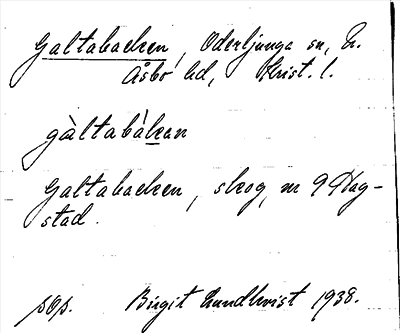 Galtabacken, Oderljunga sn, N.
Åsbo hd, Krist. l.
gàltabákan
Galtabacken, skog, nr 9 Hag-
stad.
pOp. Birgit Lundkvist 1938.